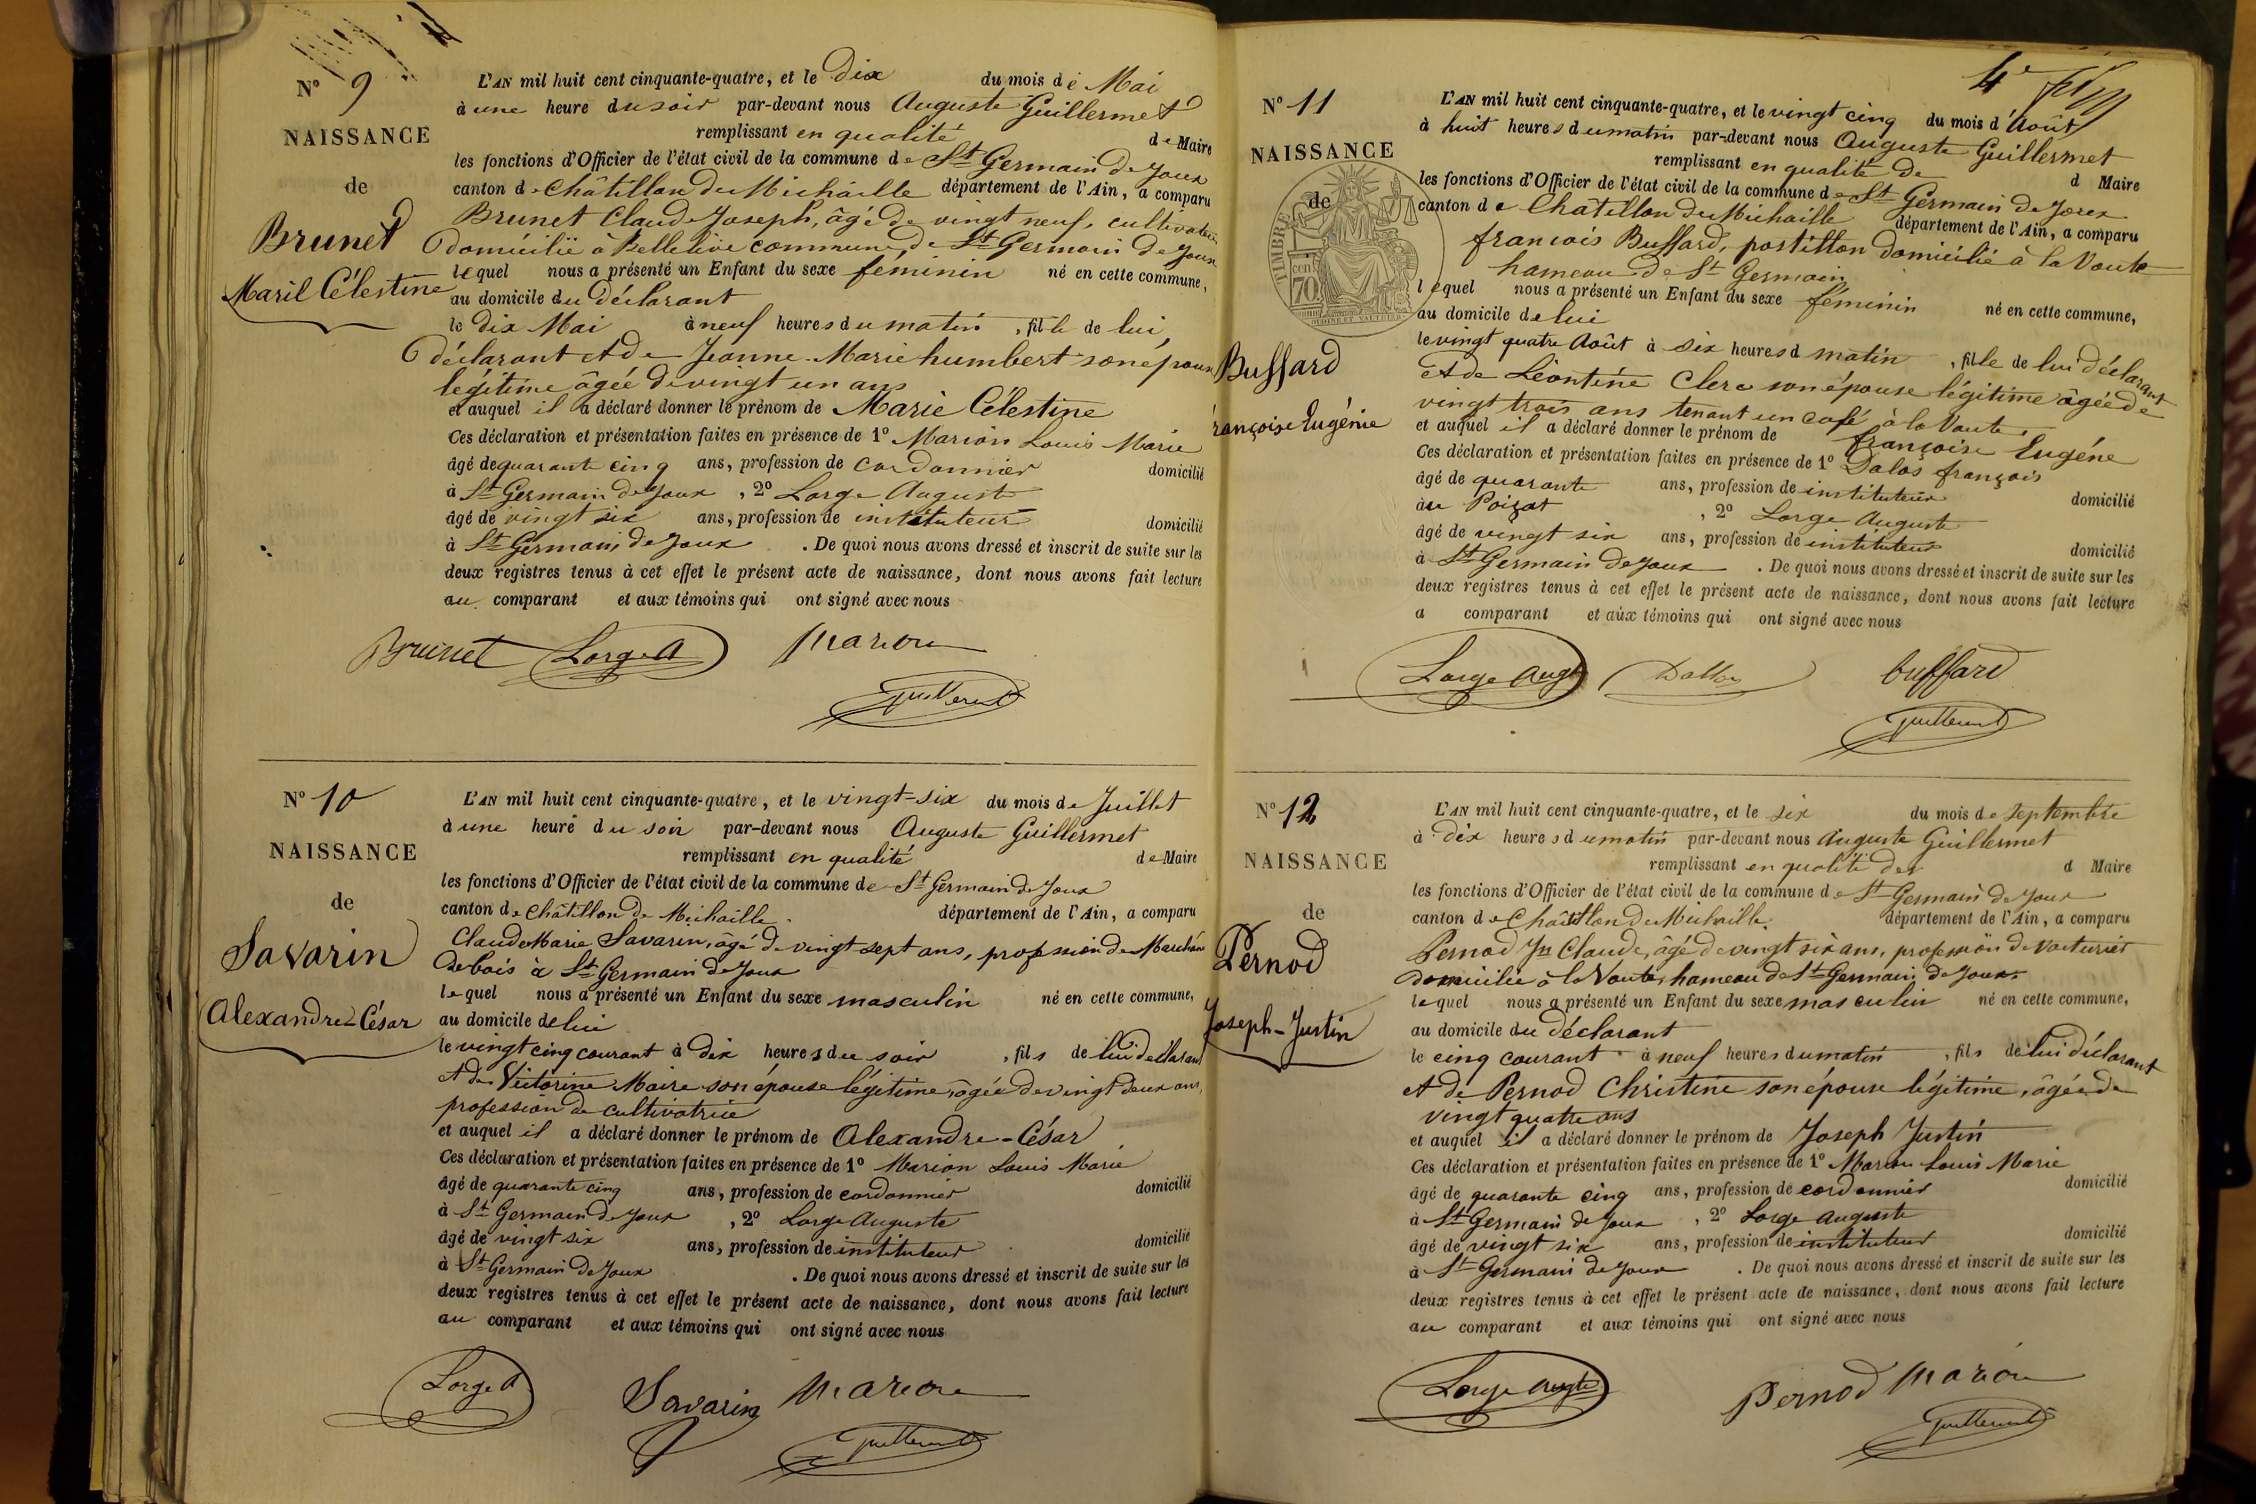 N° 9
NAISSANCE
de
Brunet
Marie Célestine
L'AN mil huit cent cinquante-quatre, et le dix du mois de Mai
à une heure du soir par-devant nous Auguste Guillermet
remplissant en qualité de Maire
les fonctions d'Officier de l'état civil de la commune de St Germain de Joux
canton de Châtillon de Michaille département de l'Ain, a comparu
Brunet Claude Joseph, âgé de vingt neuf, cultivateur
domicilié à commune de St Germain de Joux
lequel nous a présenté un Enfant du sexe féminin né en cette commune,
au domicile du déclarant
le dix Mai à neuf heures du matin, fille de lui,
déclarant et de Jeanne-Marie humbert son épouse
légitime âgée de vingt un ans
et auquel il a déclaré donner le prénom de Marie Célestine
Ces déclaration et présentation faites en présence de 1° Marion Louis Marie
âgé de quarante cinq ans, profession de cordonnier domicilié
à St Germain de Joux, 2° Lorge Auguste
âgé de vingt six ans, profession de instituteur domicilié
à St Germain de Joux. De quoi nous avons dressé et inscrit de suite sur les
deux registres tenus à cet effet le présent acte de naissance, dont nous avons fait lecture
au comparant et aux témoins qui ont signé avec nous
Brunet Lorge A Marion
Guillermet
N° 10
NAISSANCE
de
Savarin
Alexandre-César
L'AN mil huit cent cinquante-quatre, et le vingt-six du mois de Juillet
à une heure du soir par-devant nous Auguste Guillermet
remplissant en qualité de Maire
les fonctions d'Officier de l'état civil de la commune de St Germain de Joux
canton de Châtillon de Michaille. département de l'Ain, a comparu
Claude Marie Savarin, âgé de vingt sept ans, profession de Marchand
de bois à St Germain de Joux
lequel nous a présenté un Enfant du sexe masculin né en cette commune,
au domicile de lui
le vingt cinq courant à dix heures du soir, fils de lui déclarant
et de Victorine Maire son épouse légitime, âgée de vingt deux ans,
profession de cultivatrice
et auquel il a déclaré donner le prénom de Alexandre-César
Ces déclaration et présentation faites en présence de 1° Marion Louis Marie
âgé de quarante cinq ans, profession de cordonnier domicilié
à St Germain de Joux, 2° Lorge Auguste
âgé de vingt six ans, profession de instituteur domicilié
à St Germain de Joux. De quoi nous avons dressé et inscrit de suite sur les
deux registres tenus à cet effet le présent acte de naissance, dont nous avons fait lecture
au comparant et aux témoins qui ont signé avec nous
Lorge A Savarin Marion
Guillermet
4e
N° 11
NAISSANCE
de
TIMBRE
70
Buffard
françoise Eugénie
L'AN mil huit cent cinquante-quatre, et le vingt cinq du mois d'Août
à huit heures du matin par-devant nous Auguste Guillermet
remplissant en qualité de d Maire
les fonctions d'Officier de l'état civil de la commune de St Germain de Joux
canton de Chatillon de Michaille département de l'Ain, a comparu
françois Buffard, postillon domicilié à la Voute
hameau de St Germain
lequel nous a présenté un Enfant du sexe féminin né en cette commune,
au domicile de lui
le vingt quatre Août à six heures d matin, fille de lui déclarant
et de Léontine Clerc son épouse légitime âgée de
vingt trois ans tenant un café à la Voute.
et auquel il a déclaré donner le prénom de françoise Eugéne
Ces déclaration et présentation faites en présence de 1° Dalos françois
âgé de quarante ans, profession de instituteur domicilié
au Poizat, 2° Lorge Auguste
âgé de vingt six ans, profession de instituteur domicilié
à St Germain de Joux. De quoi nous avons dressé et inscrit de suite sur les
deux registres tenus à cet effet le présent acte de naissance, dont nous avons fait lecture
a comparant et aux témoins qui ont signé avec nous
Lorge Augte buffard
Guillermet
N° 12
NAISSANCE
de
Pernod
Joseph-Justin
L'AN mil huit cent cinquante-quatre, et le six du mois de septembre
à dix heures du matin par-devant nous Auguste Guillermet
remplissant en qualité de d Maire
les fonctions d'Officier de l'état civil de la commune de St Germain de Joux
canton de Châtillon de Michaille. département de l'Ain, a comparu
Pernod Jn Claude, âgé de vingt six ans, profession de voiturier
domicilié à la Voute, hameau de St Germain de Joux.
lequel nous a présenté un Enfant du sexe masculin né en cette commune,
au domicile du déclarant
le cinq courant à neuf heures du matin, fils de lui déclarant
et de Pernod Christine son épouse légitime, âgée de
vingt quatre ans
et auquel il a déclaré donner le prénom de Joseph Justin
Ces déclaration et présentation faites en présence de 1° Marion Louis Marie
âgé de quarante cinq ans, profession de cordonnier domicilié
à St Germain de Joux, 2° Lorge Auguste
âgé de vingt six ans, profession de instituteur domicilié
à St Germain de Joux. De quoi nous avons dressé et inscrit de suite sur les
deux registres tenus à cet effet le présent acte de naissance, dont nous avons fait lecture
au comparant et aux témoins qui ont signé avec nous
Lorge Augte Pernod Marion
Guillermet